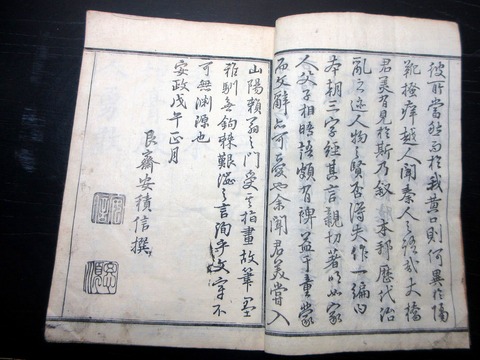 彼所當然而於我黄口則何異於隔
靴搔痒越人聞秦人之語哉大橋
君美有見於斯乃叙 本邦歴代治
亂之迹人物之賢否得失作一編曰
本朝三字經其言親切著明如家
人父子相晤語頗有裨益于童蒙
而文辭亦可愛也余聞君美嘗入
山陽頼翁之門受其指畫故筆墨
雅馴無鉤棘艱澁之言洵乎文字不
可無淵源也
安政戊午正月
艮齋安積信撰